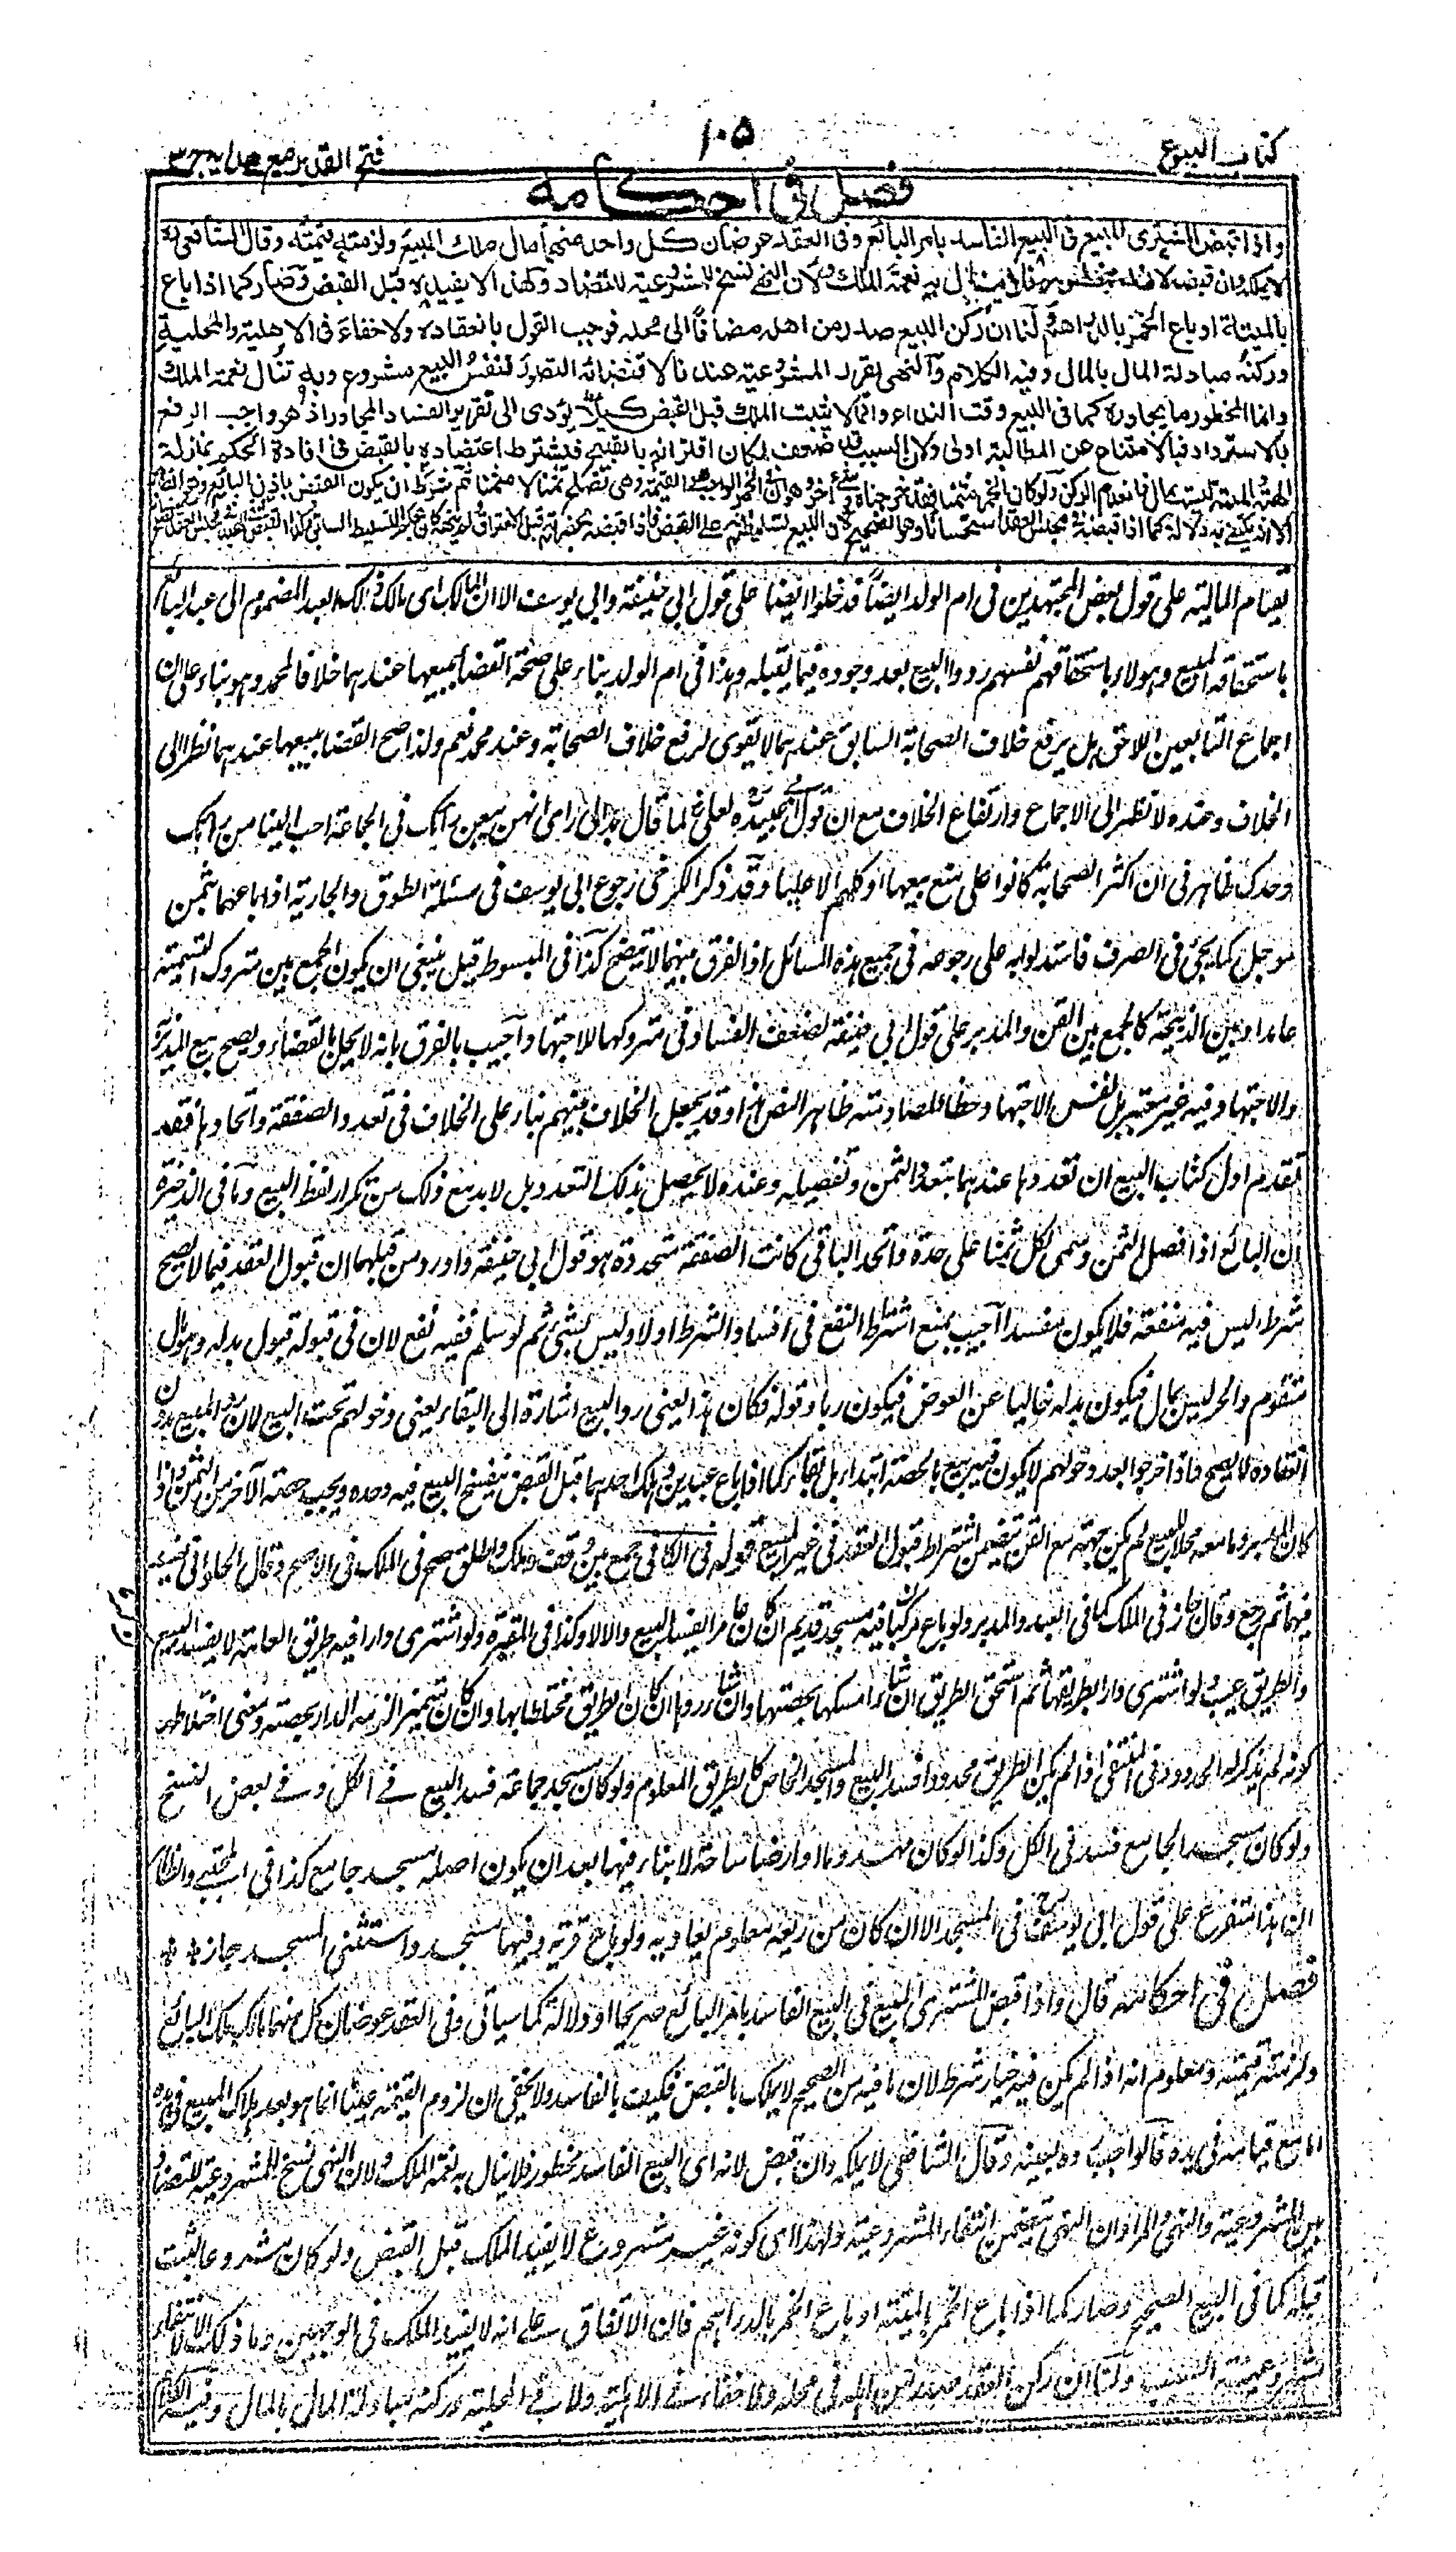 كتاب البيوع
١٠٥
فتح القدير مع هدايه ج٣
فصل في احكامه
واذا قبض المشترى المبيع فى البيع الفاسد بامر البائع وفى العقد عوضان كل واحد منهما مال ملك المبيع ولزمته قيمته وقال الشافعى
لا يملكه وان قبضه لانه محظور فلا ينال به نعمة الملك ولان النهى نسخ للمشروعية للتضاد ولهذا لا يفيده قبل القبض وصار كما اذا باع
بالميتة او باع الخمر بالدراهم ولنا ان ركن البيع صدر من اهله مضافا الى محله فوجب القول بانعقاده ولا خفاء فى الاهلية والمحلية
وركنه مبادلة المال بالمال وفيه الكلام والنهى يقرر المشروعية عندنا لاقتضائه التصور فنفس البيع مشروع وبه تنال نعمة الملك
وانما المحظور ما يجاوره كما فى البيع وقت النداء وانما لا يثبت الملك قبل القبض كيلا يؤدى الى تقرير الفساد المجاور اذ هو واجب الرفع
بالاسترداد فبالامتناع عن المطالبة اولى ولان السبب قد ضعف لمكان اقترانه بالقبيح فيشترط اعتضاده بالقبض فى افادة الحكم بمنزلة
الهبة والميتة ليست بمال فانعدم الركن ولو كان الخمر مثمنا فقد خرجناه وشئ اخر وهو ان فى الخمر الواجب هو القيمة وهى تصلح ثمنا لا مثمنا ثم شرط ان يكون القبض باذن البائع وهو الظاهر
الا انه يكتفى به دلالة كما اذا قبضه فى مجلس العقد استحسانا وهو الصحيح لان البيع تسليط منه على القبض فاذا قبضه بحضرته قبل الافتراق ولم ينهه كان بحكم التسليط السابق وكذا القبض فى الهبة فى مجلس العقد
لقيام المالية على قول بعض المجتهدين فى ام الولد ايضا قد دخلوا ايضا على قول ابى حنيفة وابى يوسف الا ان المالك اى مالك ذلك العبد المضموم الى عبد البائع
باستحقاقه المبيع وهؤلاء باستحقاقهم نفسهم ردوا البيع بعد وجوده فيما يقبله وهذا فى ام الولد بناء على صحة القضا ببيعها عندهما خلافا لمحمد وهو بناء على ان
اجماع التابعين اللاحق هل يرفع خلاف الصحابة السابق عندهما لا يقوى لرفع خلاف الصحابة وعند محمد نعم ولذا صح القضا ببيعها عندهما نظرا الى
الخلاف وعنده لا نظرا الى الاجماع وارتفاع الخلاف مع ان قول عبيدة لعلى لما قال بدا لى راى انهن يبعن رايك فى الجماعة احب الينا من رايك
وحدك ظاهر فى ان اكثر الصحابة كانوا على منع بيعها او كلهم الا عليا وقد ذكر الكرخى رجوع ابى يوسف فى مسئلة الطوق والجارية اذا باعهما بثمن
موجل كما يجئ فى الصرف فاستدلوا به على رجوعه فى جميع هذه المسائل اذ الفرق بينهما لا يتضح كذا فى المبسوط قيل ينبغى ان يكون الجمع بين متروك التسمية
عامدا وبين الذبيحة كالجمع بين القن والمدبر على قول ابى حنيفة لضعف الفساد فى متروكها للاجتهاد واجيب بالفرق بانه لا يحل بالقضاء ويصح بيع المدبر
والاجتهاد فيه غير معتبر بل نفس الاجتهاد خطا لمصادمته ظاهر النص هذا وقد يجعل الخلاف بينهم بناء على الخلاف فى تعدد الصفقة واتحادها فقد
تقدم اول كتاب البيع ان تعددها عندهما بتعدد الثمن وتفصيله وعنده لا يحصل بذلك التعدد بل لا بد مع ذلك من تكرار لفظ البيع وما فى الذخيرة
ان البائع اذا فصل الثمن وسمى لكل ثمنا على حدة واتحد الباقى كانت الصفقة متحدة هو قول ابى حنيفة واورد من قبلهما ان قبول العقد فيما لا يصح
شرط ليس فيه منفعة فلا يكون مفسدا اجيب بمنع اشتراط النفع فى افساد الشرط اولا وليس بشئ ثم لو سلم ففيه نفع لان فى قبوله قبول بدله وهو مال
متقوم والحر ليس بمال فيكون بدله خاليا عن العوض فيكون ربا وقوله فكان هذا يعنى رد البيع اشارة الى البقاء يعنى دخولهم تحت البيع لان رد المبيع بدون
انعقاده لا يصح فاذا خرجوا بعد دخولهم لا يكون فيه بيع بالحصة ابتداء بل بقاء كما اذا باع عبدين وهلك احدهما قبل القبض ينفسخ البيع فيه وحده ويجب حصة الآخر من الثمن واذا
كان المدبر وما معه محلا للبيع لم يكن جمعه مع القن متضمن اشتراط قبول العقد فى غير المبيع قوله فى الكافى جمع بين وقف وملك واطلق صح فى الملك فى الاصح وقال الحلوانى
فيهما ثم رجع وقال جاز فى الملك كما فى العبد والمدبر ولو باع كرما فيه مسجد قديم ان كان عامرا يفسد البيع والا لا وكذا فى المقبرة ولو اشترى دارا فيه طريق العامة لا يفسد البيع
والطريق عيب ولو اشترى دارا بطريقها ثم استحق الطريق ان شاء امسكها بحصتها وان شاء ردها ان كان الطريق مختلطا بها وان كان متميز الزمه الدار بحصته ومعنى اختلاطه
كونه لم يذكر له الحدود وفى المنتقى اذا لم يكن الطريق محدودا فسد البيع والمسجد الخاص كالطريق المعلوم ولو كان مسجد جماعة فسد البيع فى الكل وفى بعض النسخ
ولو كان مسجد الجامع فسد فى الكل وكذا لو كان مهدوما او ارضا ساحة لا بناء فيها بعد ان يكون اصله مسجد جامع كذا فى المجتبى والظاهر
ان هذا متفرع على قول ابى يوسف فى المسجد الا ان كان من ريعه معلوم يعاد به ولو باع قرية وفيها مسجد واستثنى المسجد جاز
فصل فى احكامه قال واذا قبض المشترى المبيع فى البيع الفاسد بامر البائع صريحا او دلالة كما سياتى وفى العقد عوضان كل منهما مال ملك البائع
ولزمته قيمته ومعلوم انه اذا لم يكن فيه خيار شرط لان ما فيه من الصحيح لا يملك بالقبض فكيف بالفاسد ولا يخفى ان لزوم القيمة عينا انما هو بعد هلاك المبيع فى يده
اما مع قيامه فى يده فالواجب رده بعينه وقال الشافعى لا يملكه وان قبض لانه اى البيع الفاسد محظور فلا ينال به نعمة الملك ولان النهى نسخ للمشروعية للتضاد
بين المشروعية والنهى والمراد ان النهى يتضمن انتفاء المشروعية ولهذا اى كونه غير مشروع لا يفيد الملك قبل القبض ولو كان مشروعا لثبت
قبله كما فى البيع الصحيح وصار كما اذا باع الخمر بالميتة او باع الخمر بالدراهم فان الاتفاق على انه لا يفيد الملك فى الوجهين وما ذلك الا لانتفاء
ولنا ان ركن العقد صدر من اهله فى محله ولا خفاء فى الاهلية ولا فى المحلية وركنه مبادلة المال بالمال وفيه الكلام